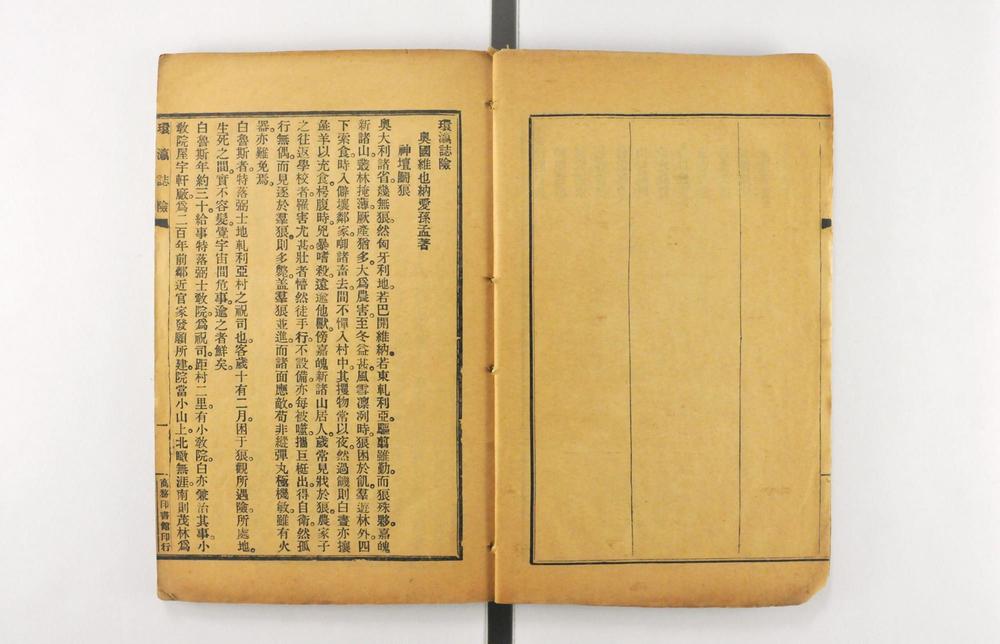 環瀛誌險
奧國維也納愛孫孟著
神壇鬭狼
奧大利諸省幾無狼。然匈牙利地。若巴開維納。若東軋利亞。驅翦雖勤。而狼殊夥。嘉魄
新諸山。叢林掩薄。厥產猶多。大爲農害。至冬益甚。風雪凜冽時。狼困於飢。羣遊林外。四
下索食。時入僻壤鄰家。啣諸畜去。間不憚入村中。其攫物常以夜。然過饑則白晝亦攘
彘羊以充食。枵腹時。兇暴嗜殺。遠邁他獸。傍嘉魄新諸山居人。歲常見戕於狼。農家子
之往返學校者。罹害尤甚。壯者懵然徒手行。不設備。亦每被噬。攜巨梃出。得自衛。然孤
行無偶。而見逐於羣狼。則多斃。蓋羣狼並進。而諸面應敵。苟非縱彈丸極機敏。雖有火
器。亦難免焉。
白魯斯者。特落弼士地軋利亞村之祝司也。客歲十有二月。困于狼。觀所遇險。所處地。
生死之間。實不容髮。覺宇宙間危事。逾之者鮮矣。
白魯斯年約三十。給事特落弼士敎院。爲祝司。距村二里。有小敎院。白亦兼治其事。小
敎院屋宇軒厰。爲二百年前鄰近官家發願所建。院當小山上。北瞰無涯。南則茂林爲
環瀛誌險
一
商務印書館印行